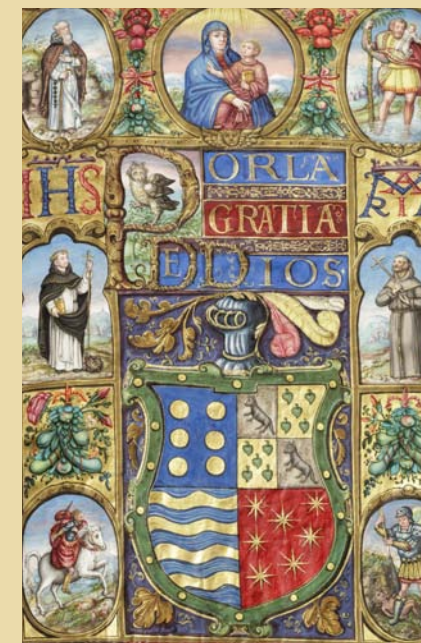 IHS
PORLA
GRATIA
DE DIOS